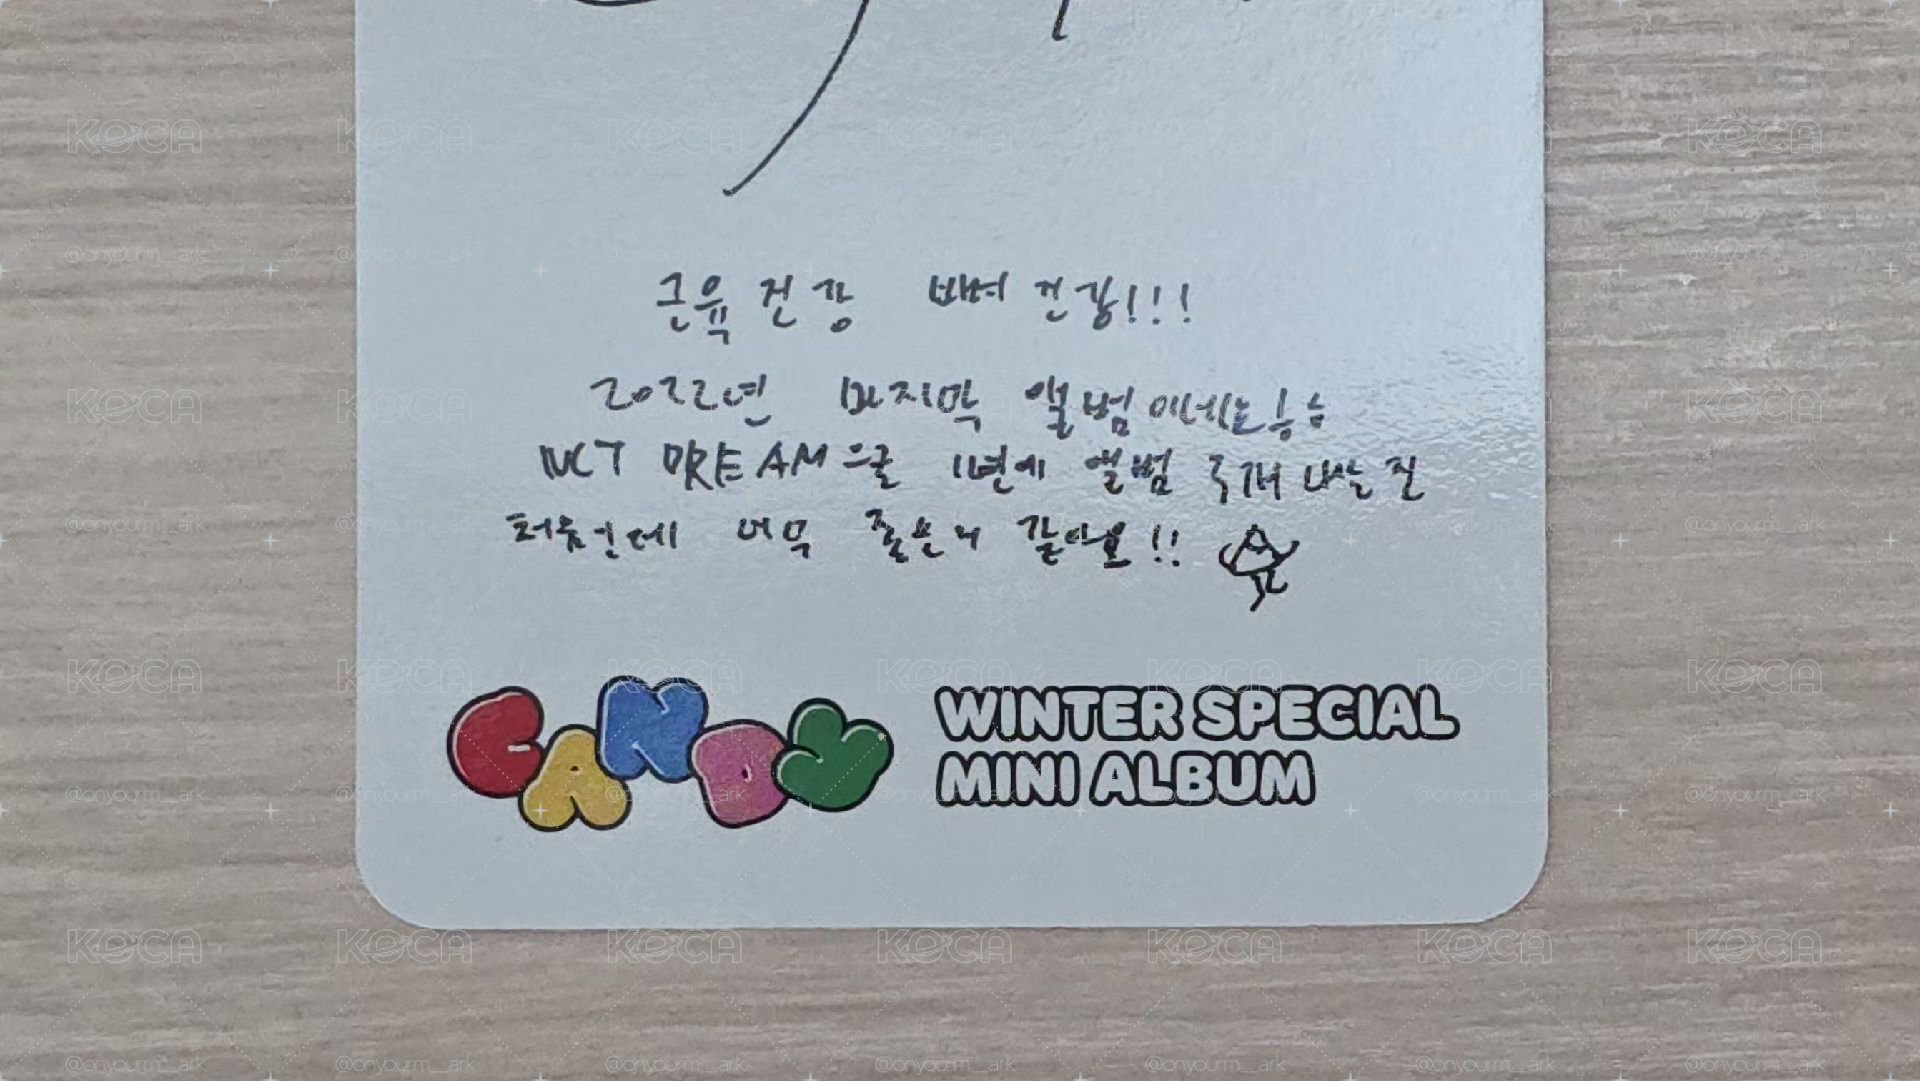 근육 건강 뼈 건강!!!
2022년 마지막 앨범이네요ㅎㅎ
NCT DREAM으로 1년에 앨범 3개 내는 건
처음인데 너무 좋은거 같아요!!
CANDY
WINTER SPECIAL
MINI ALBUM
KOCA
@onyourm__ark